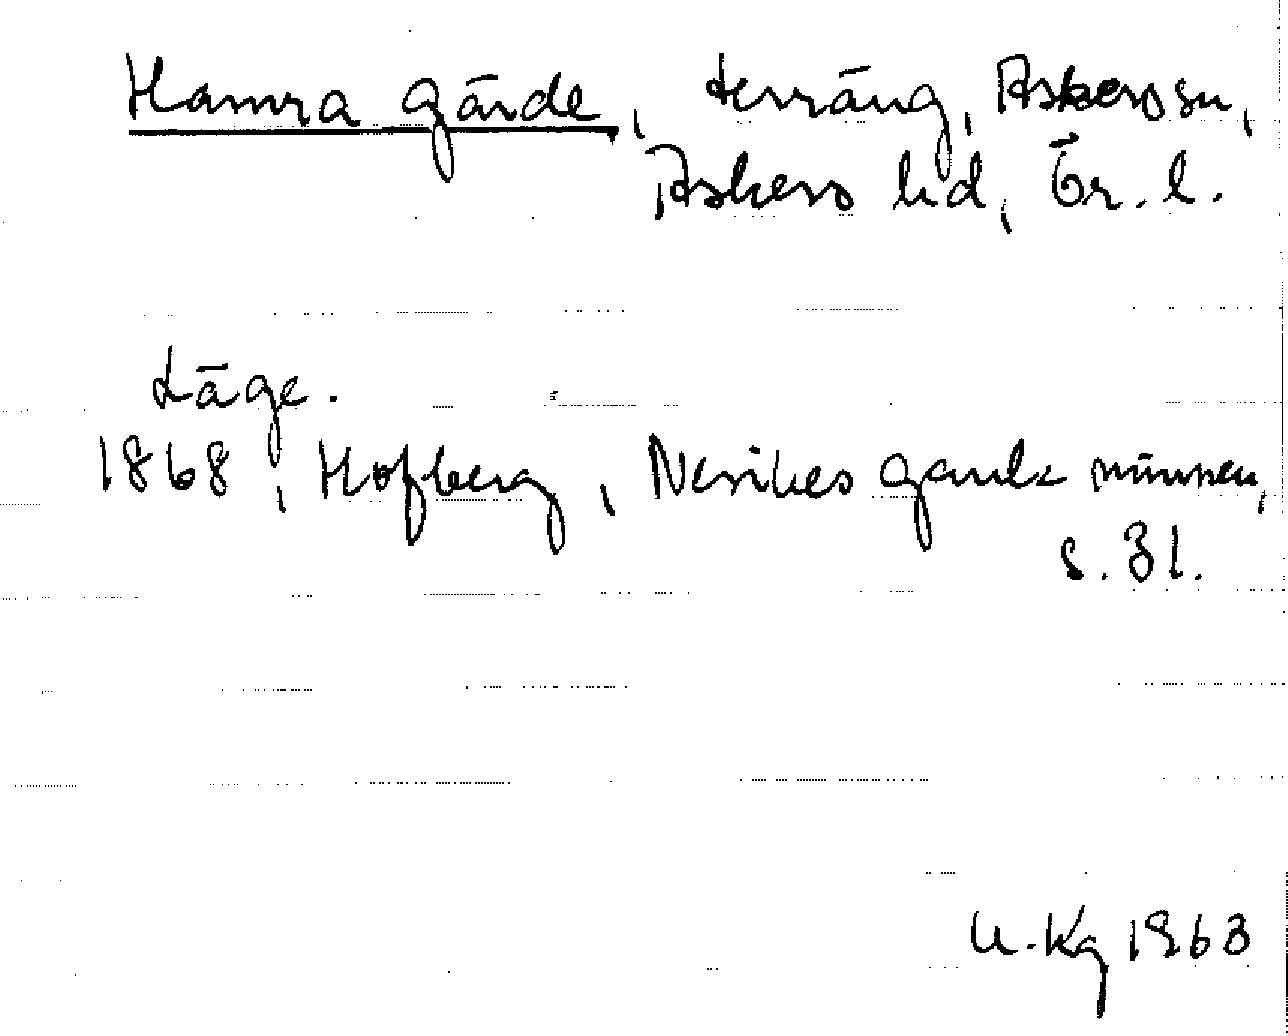 Hamra gärde, terräng, Askers sn,
Askers hd, Ör. l.
Läge.
1868, Hofberg, Nerikes gamla minnen,
s. 31.
U.Kg 1963